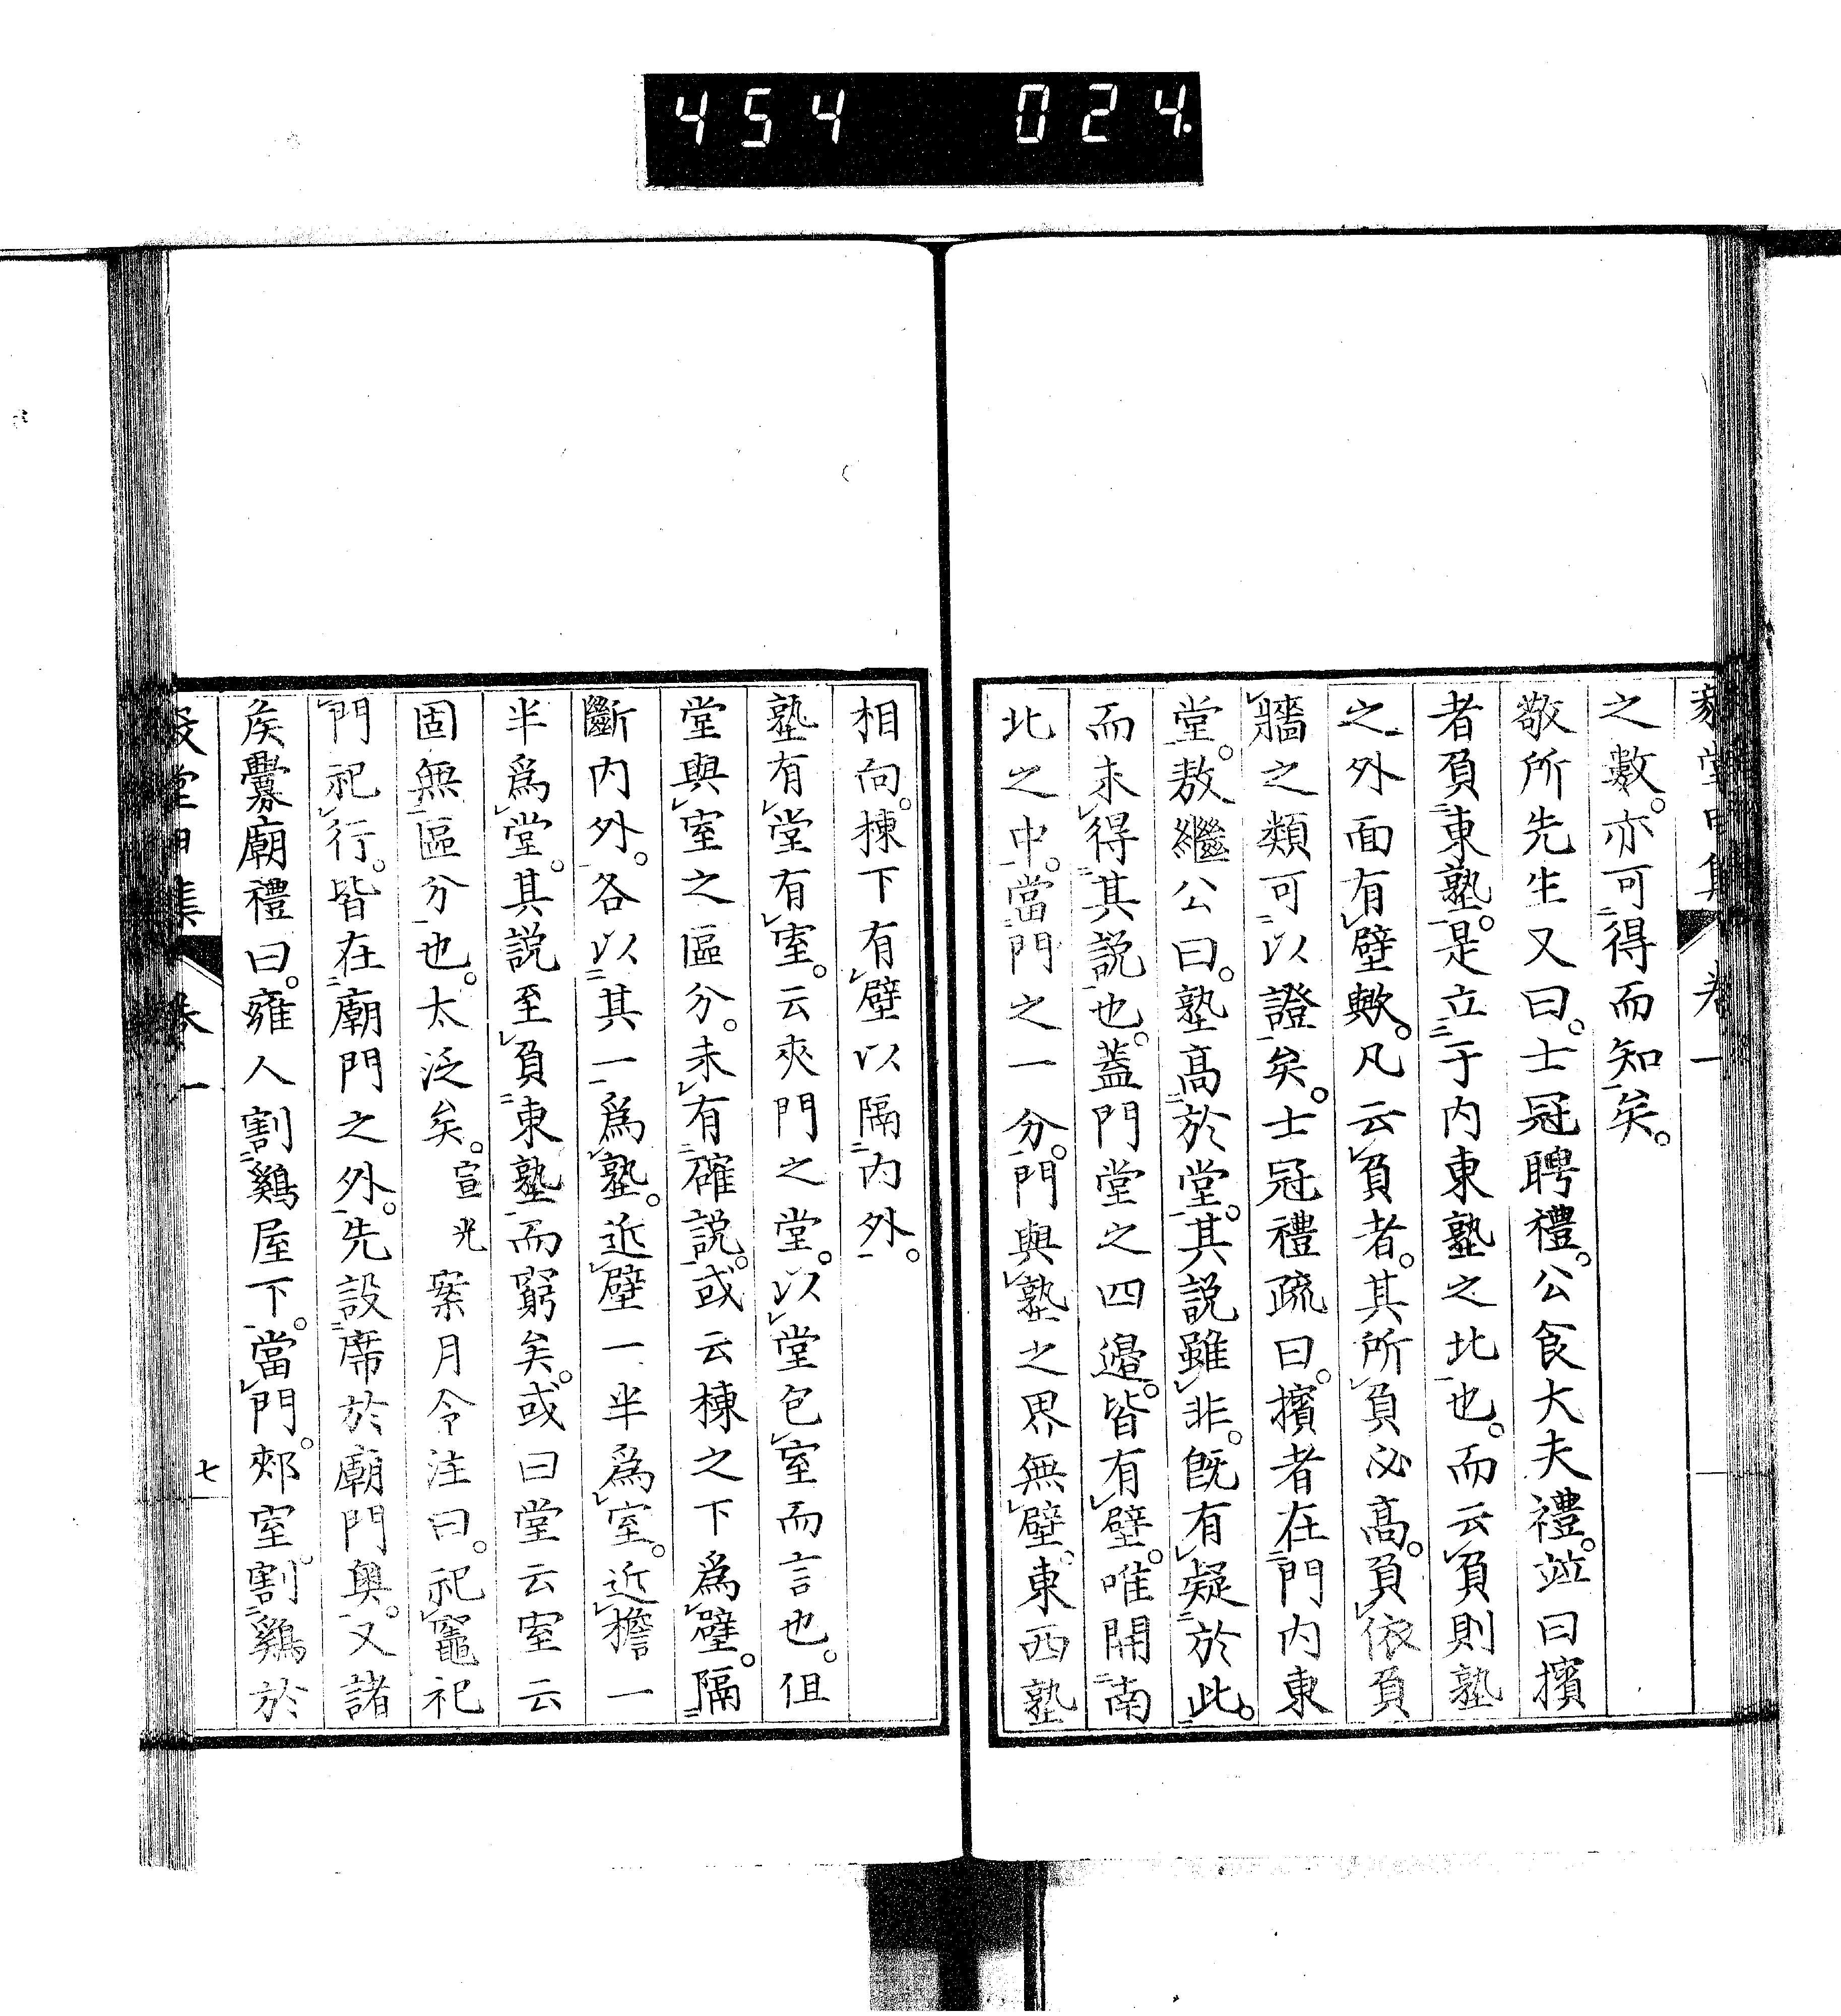 454 024.
之數。亦可得而知矣。
敬所先生又曰。士冠聘禮。公食大夫禮。竝曰擯
者負東塾。是立于内東塾之北也。而云負則塾
之外面有壁歟。凡云負者。其所負必高。負依負
牆之類可以證矣。士冠禮疏曰。擯者在門内東
堂。敖繼公曰。塾高於堂。其説雖非。既有疑於此。
而未得其説也。蓋門堂之四邊。皆有壁。唯開南
北之中。當門之一分。門與塾之界無壁。東西塾
相向。棟下有壁以隔内外。
塾有堂有室。云夾門之堂。以堂包室而言也。但
堂與室之區分。未有確説。或云棟之下爲壁。隔
斷内外。各以其一爲塾。近壁一半爲室。近檐一
半爲堂。其説至負東塾而窮矣。或曰堂云室云
固無區分也。太泛矣。宣光案月令注曰。祀竈祀
門祀行。皆在廟門之外。先設席於廟門奧。又諸
矦釁廟禮曰。雍人割鷄屋下。當門。郟室割鷄於
七